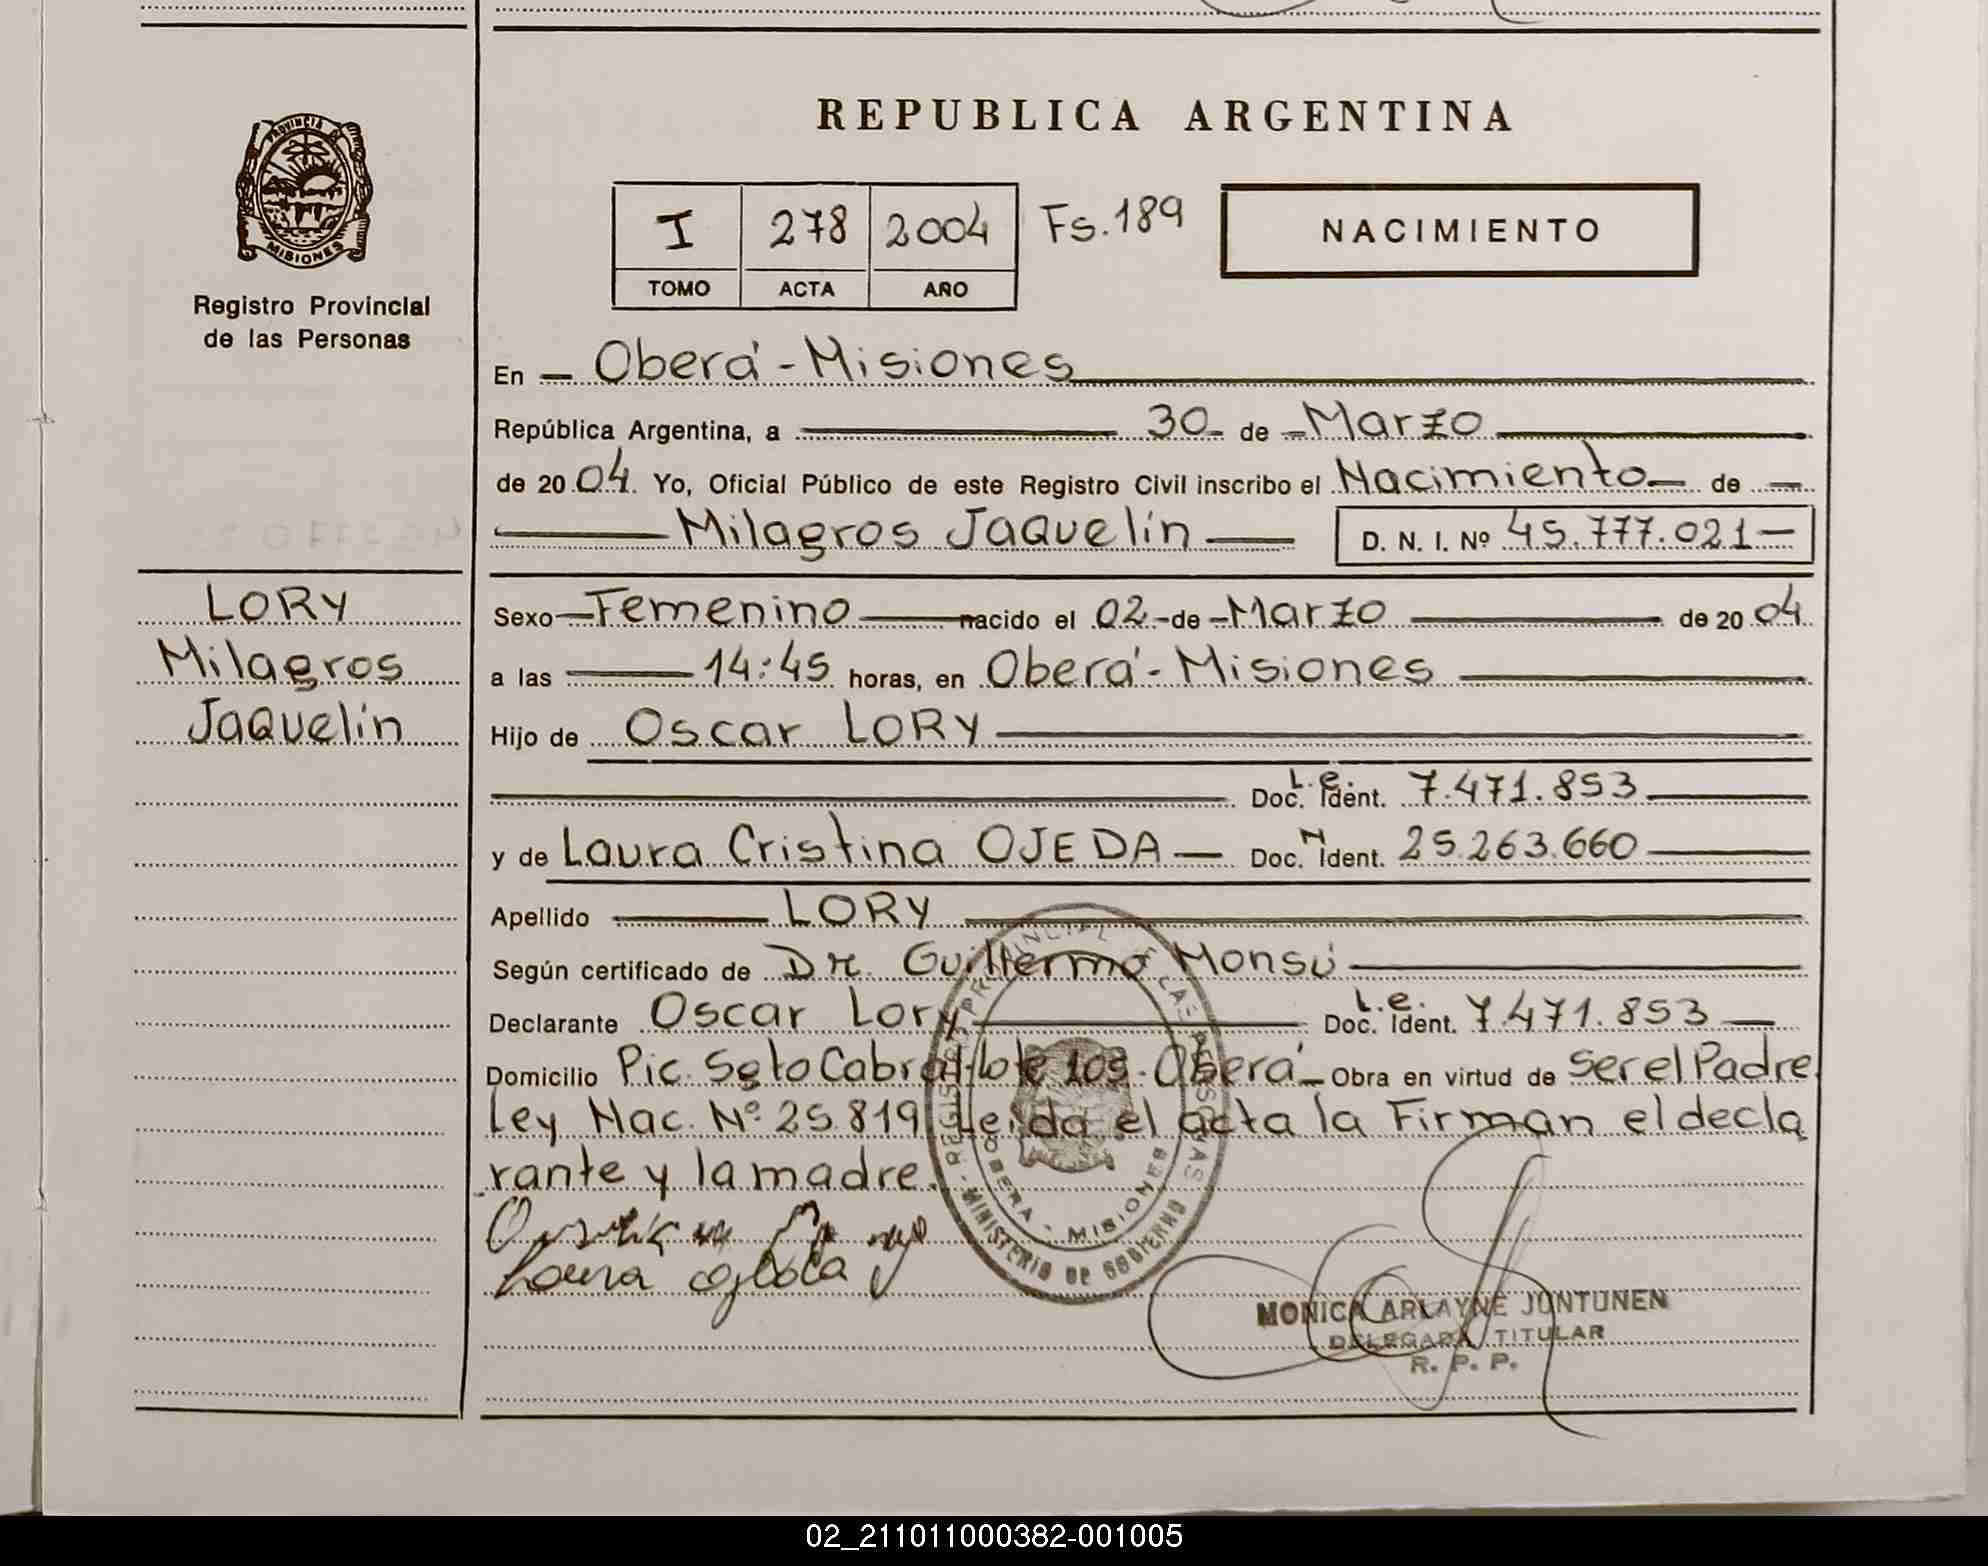 REPUBLICA ARGENTINA
PROVINCIA DE
MISIONES
Registro Provincial
de las Personas
I 278 2004 Fs. 189
TOMO ACTA AÑO
NACIMIENTO
En Oberá - Misiones
República Argentina, a 30 de Marzo
de 2004. Yo, Oficial Público de este Registro Civil inscribo el Nacimiento de
Milagros Jaquelin D. N. I. Nº 45.777.021
LORY
Milagros
Jaquelin
Sexo Femenino nacido el 02 de Marzo de 2004
a las 14:45 horas, en Oberá - Misiones
Hijo de Oscar LORY
L.e.
Doc. Ident. 7.471.853
y de Laura Cristina OJEDA Doc. N Ident. 25.263.660
Apellido LORY
Según certificado de Dr. Guillermo Monsú
Declarante Oscar Lory L.e. Doc. Ident. 7.471.853
Domicilio Pic. Sgto Cabral - lote 109 - Oberá Obra en virtud de Ser el Padre
Ley Nac. Nº 25.819 Leida el acta la Firman el decla
rante y la madre.
REGISTRO PROVINCIAL DE LAS PERSONAS
OBERA - MISIONES
MINISTERIO DE GOBIERNO
Laura Ojeda
MONICA ARLAYNE JUNTUNEN
DELEGADA TITULAR
R. P. P.
02_211011000382-001005